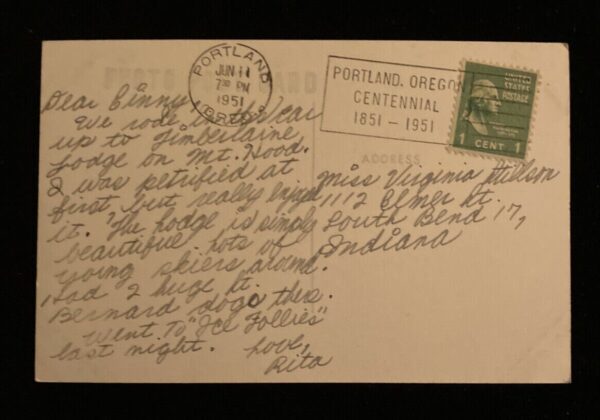 PHOTO
CARD
PORTLAND
JUN 11
7 30 PM
1951
OREG.
PORTLAND, OREGON
CENTENNIAL
1851 - 1951
UNITED
STATES
POSTAGE
WASHINGTON
1 CENT 1
ADDRESS
Dear Ginny
We rode in
up to Timberlaine
Lodge on Mt. Hood.
I was petrified at
first but really enjoyed
it. The lodge is simply
beautiful. Lots of
young skiers around.
Had 2 huge St.
Bernard dogs there.
Went to "Ice Follies"
last night. Love,
Rita
Miss Virginia
1112 Elmer St.
South Bend 17,
Indiana